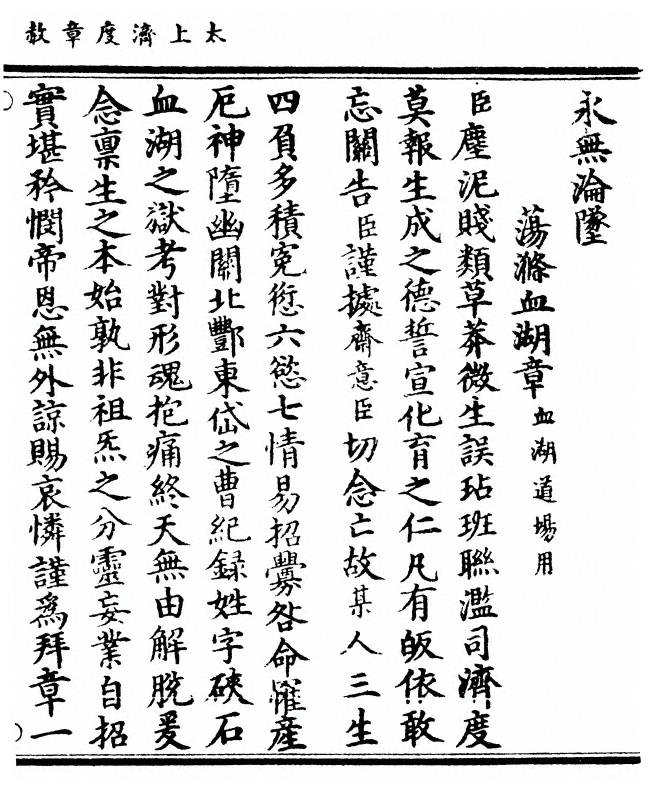 太上濟度章赦
永無淪墜
蕩滌血湖章 血湖道場用
臣塵泥賤類草莽微生誤玷班聯濫司濟度
莫報生成之德誓宣化育之仁凡有皈依敢
忘關告臣謹據齋意臣切念亡故某人三生
四負多積寃愆六慾七情易招釁咎命罹產
厄神墮幽關北酆東岱之曹紀録姓字硤石
血湖之獄考對形魂抱痛終天無由解脫爰
念禀生之本始孰非祖炁之分靈妄業自招
實堪矜憫帝恩無外諒賜哀憐謹爲拜章一